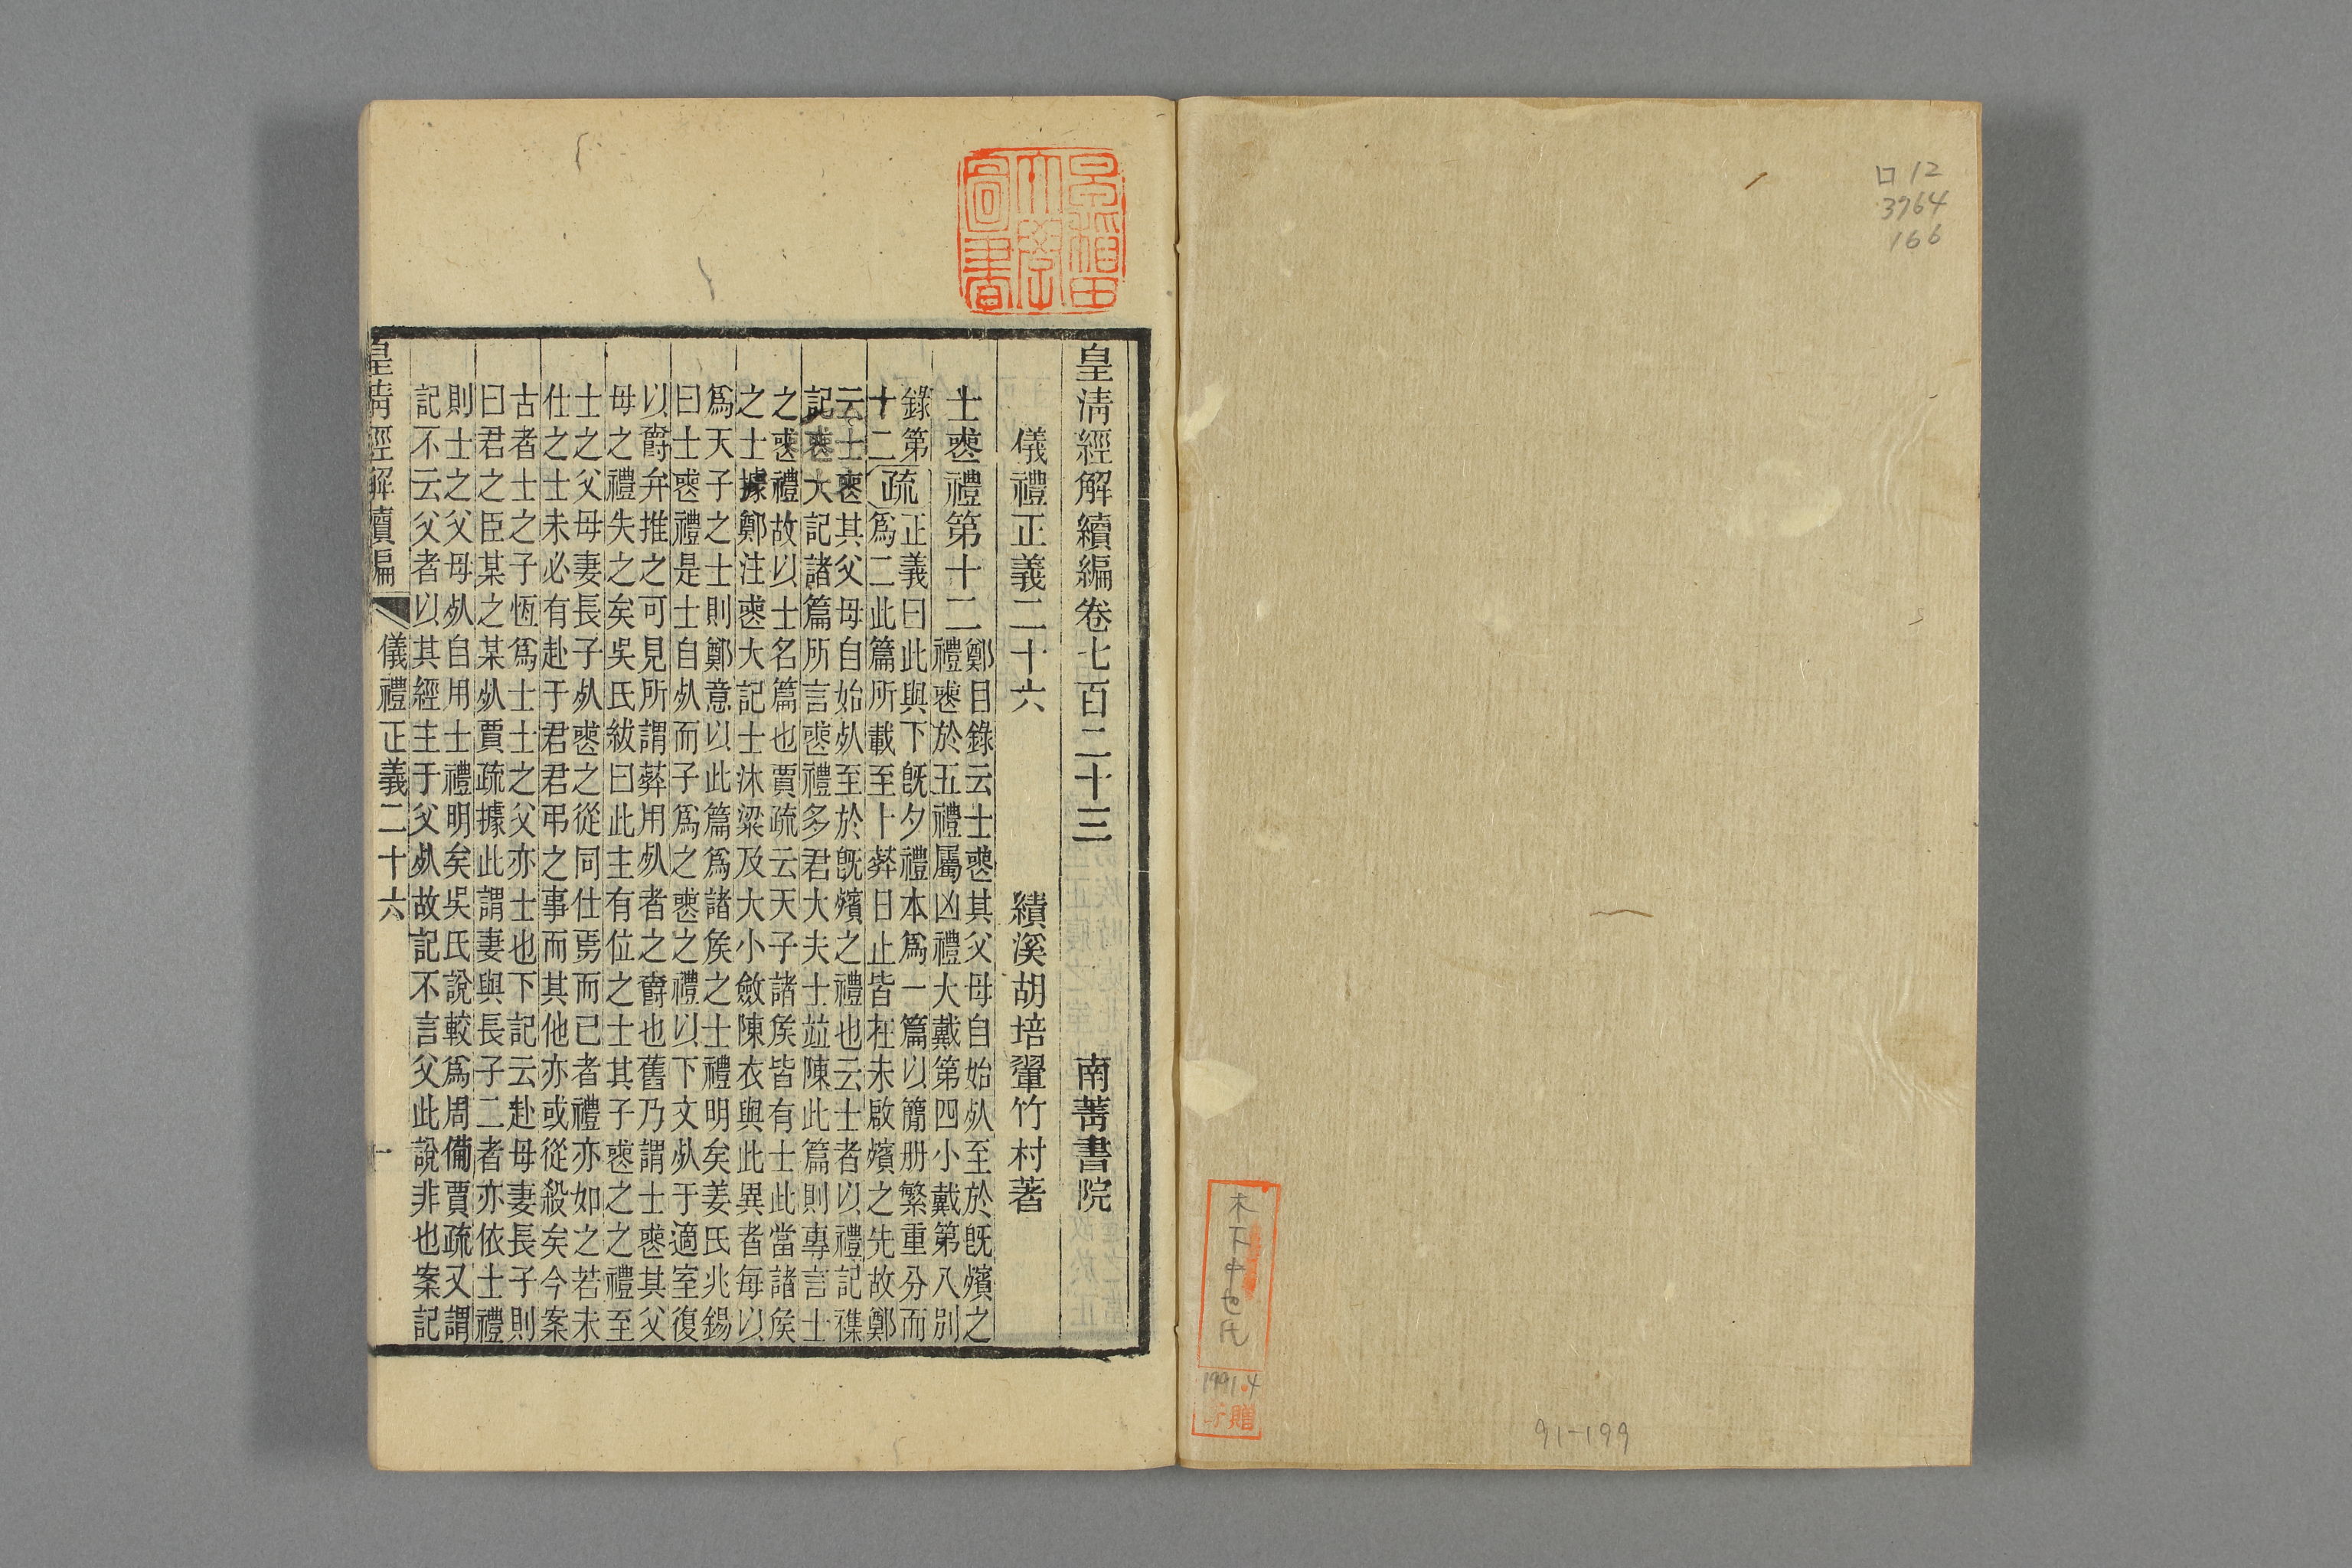 ロ12
3764
166
1991.4
寄贈
91-199
早稲田大學圖書
皇清經解續編卷七百二十三　南菁書院
儀禮正義二十六　績溪胡培翬竹村著
士喪禮第十二
鄭目錄云士喪其父母自始死至於旣殯之
禮喪於五禮屬凶禮大戴第四小戴第八別
錄第
十二
疏
正義曰此與下旣夕禮本爲一篇以簡册繁重分而
爲二此篇所載至卜葬日止皆在未啟殯之先故鄭
云士喪其父母自始死至於旣殯之禮也云士者以禮記襍
記喪大記諸篇所言喪禮多君大夫士竝陳此篇則專言士
之喪禮故以士名篇也賈疏云天子諸矦皆有士此當諸矦
之士據鄭注喪大記士沐粱及大小斂陳衣與此異者每以
爲天子之士則鄭意以此篇爲諸矦之士禮明矣姜氏兆錫
曰士喪禮是士自死而子爲之喪之禮以下文死于適室復
以爵弁推之可見所謂葬用死者之爵也舊乃謂士喪其父
母之禮失之矣吳氏紱曰此主有位之士其子喪之之禮至
士之父母妻長子死喪之從同仕焉而已者禮亦如之若未
仕之士未必有赴于君君弔之事而其他亦或從殺矣今案
古者士之子恆爲士士之父亦士也下記云赴母妻長子則
曰君之臣某之某死賈疏據此謂妻與長子二者亦依士禮
則士之父母死自用士禮明矣吳氏說較爲周備賈疏又謂
記不云父者以其經主于父死故記不言父此說非也案記
皇清經解續編　儀禮正義二十六　一